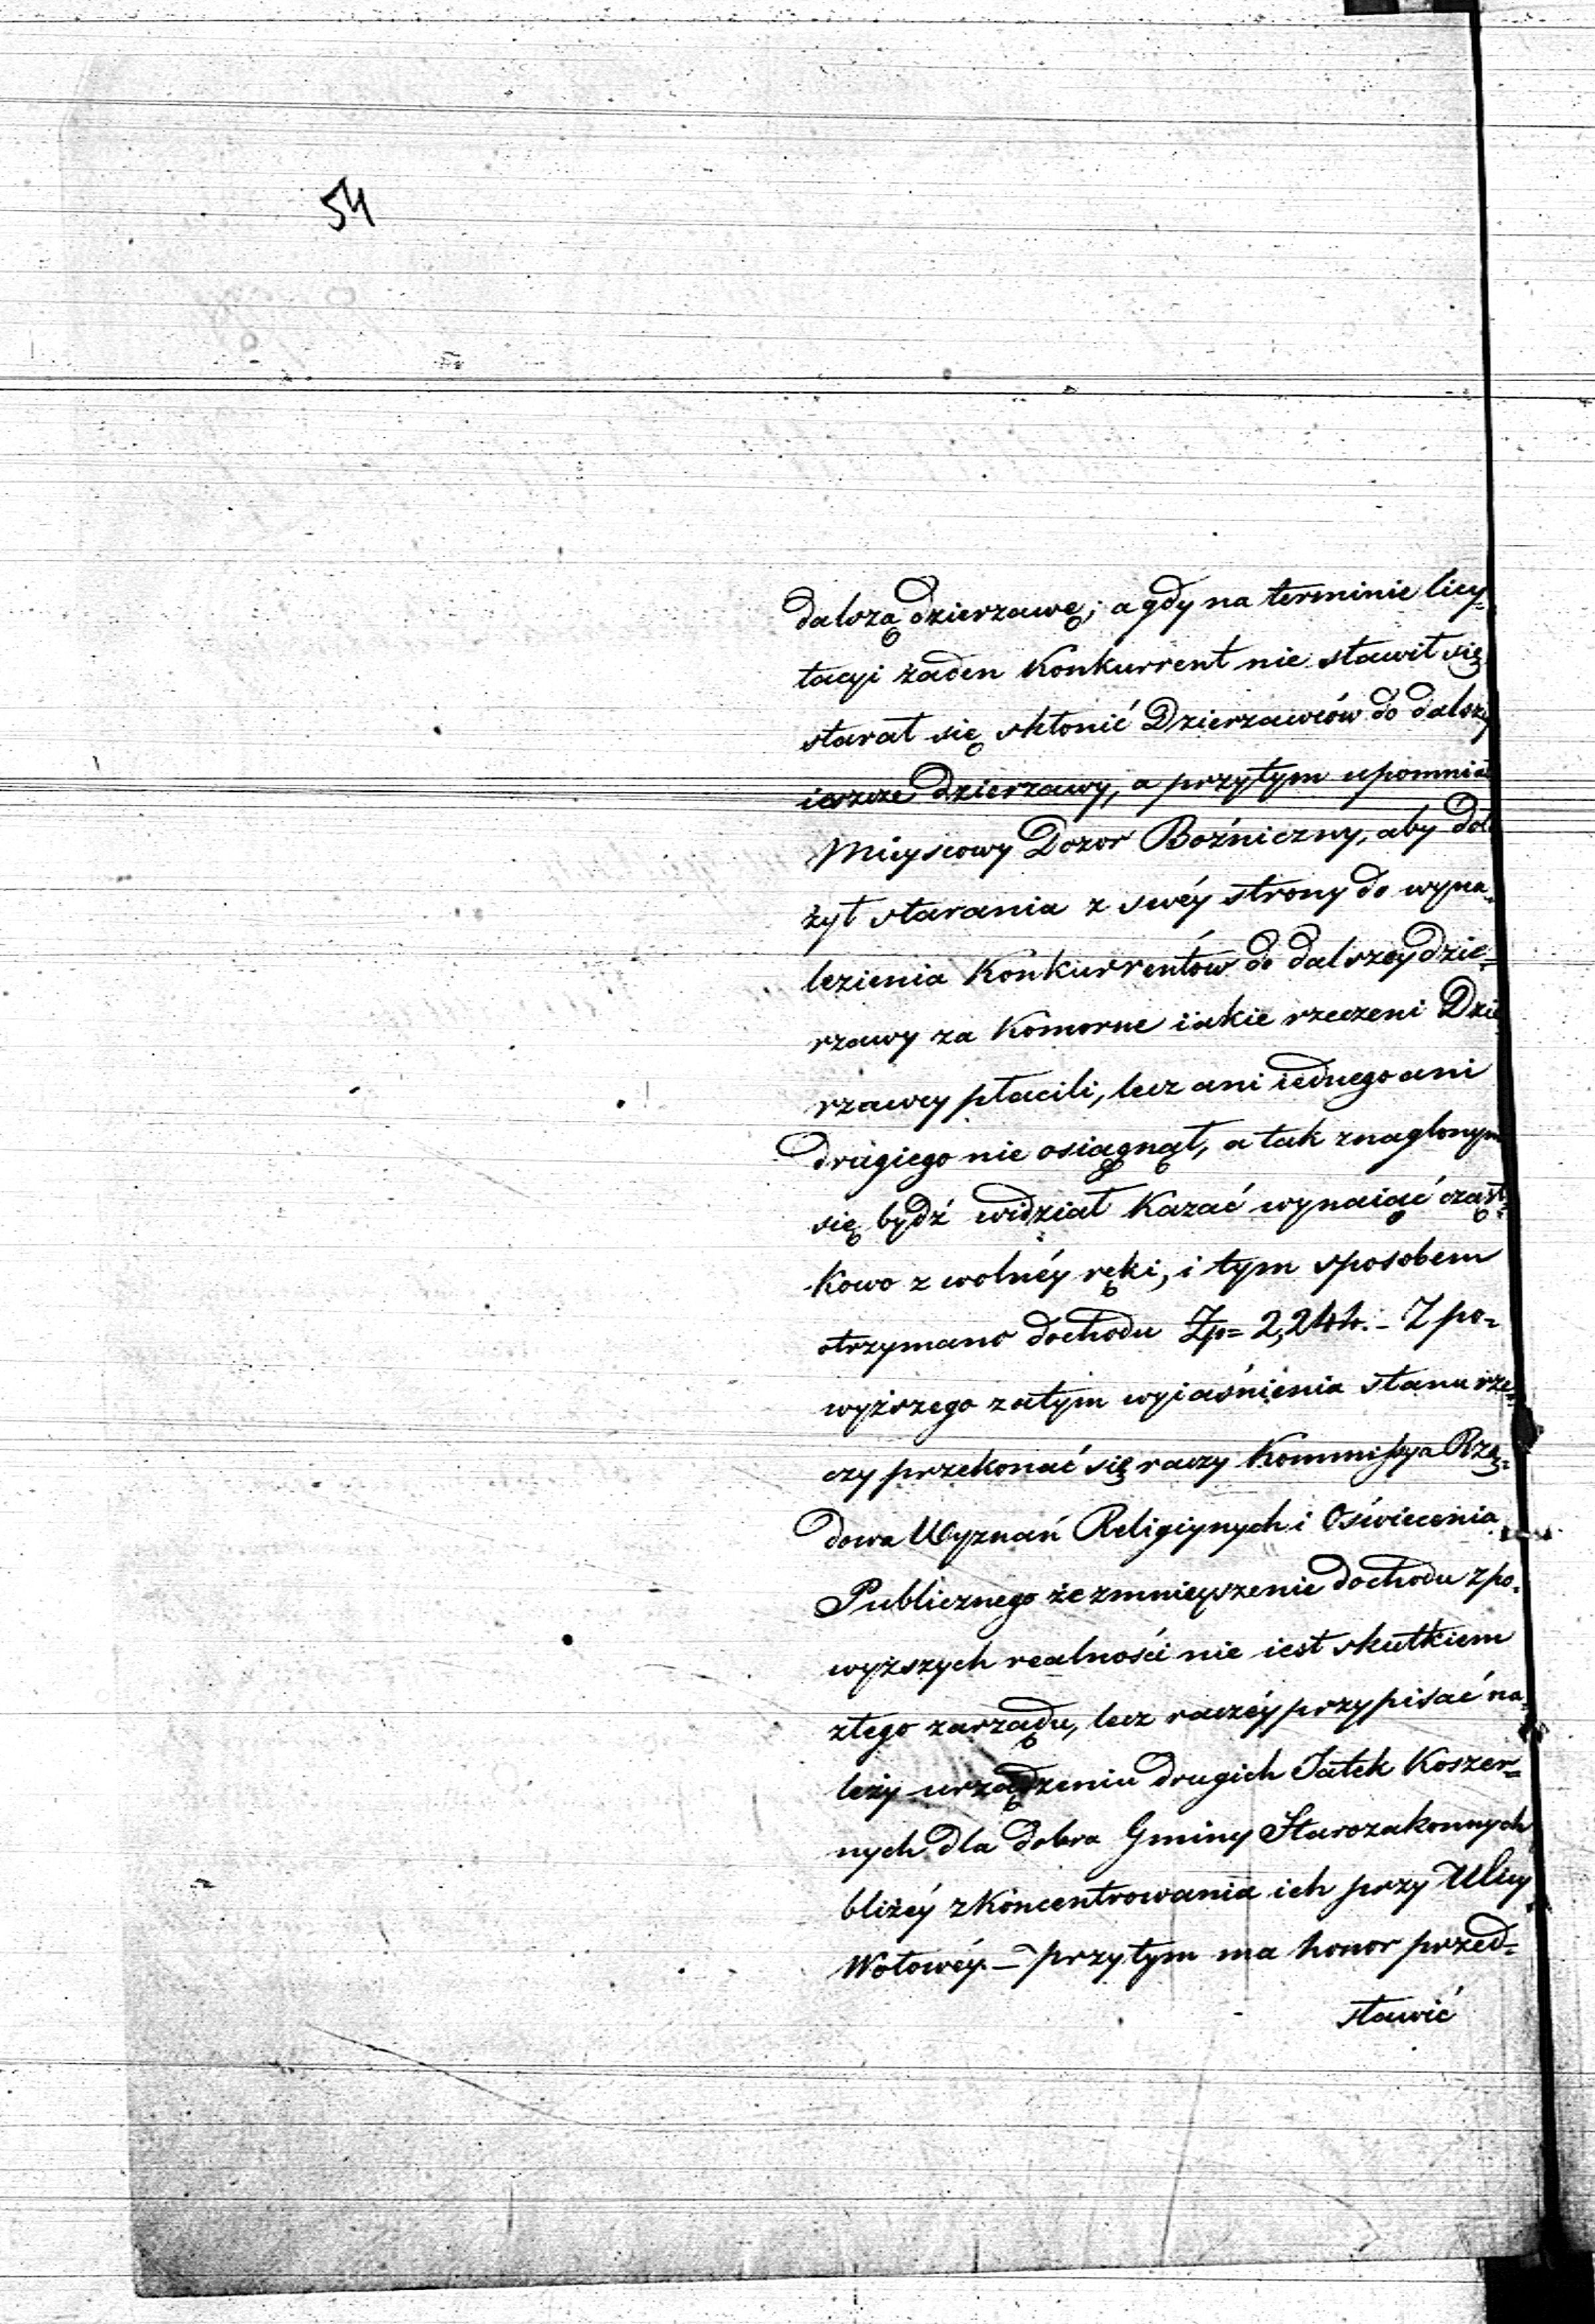 54
dalszą dzierzawę; a gdy na terminie licy-
tacyi żaden Konkurrent nie stawił się
starał się skłonić Dzierzawców do dalszy
ieszcze dzierzawy, a przytym upomniał
Mieyscowy Dozor Bożniczny, aby doło
żył starania z swéy strony do wyna-
lezienia Konkurrentów do dalszey dzie=
rzawy za Komorne iakie rzeczeni Dzie
rzawcy płacili, lecz ani iednego ani
drugiego nie osiągnął, a tak znaglonym
się bydź widział Kazać wynaiąć cząst-
kowo z wolnéy ręki, i tym sposobem
otrzymano dochodu Zp= 2,244.- Z po-
wyższego zatym wyiaśnienia stanu rze-
czy przekonać się raczy Kommissya Rzą-
dowa Wyznań Religiynych i Oświecenia
Publicznego że zmnieyszenie dochodu z po-
wyższych realności nie iest skutkiem
złego zarządu, lecz raczéy przypisać na-
leży urządzeniu drugich Jatek Koszer=
nych dla dobra Gminy Starozakonnych
bliżéy zkoncentrowania ich przy Ulicy
Wołowéy.- przytym ma honor przed=
stawić